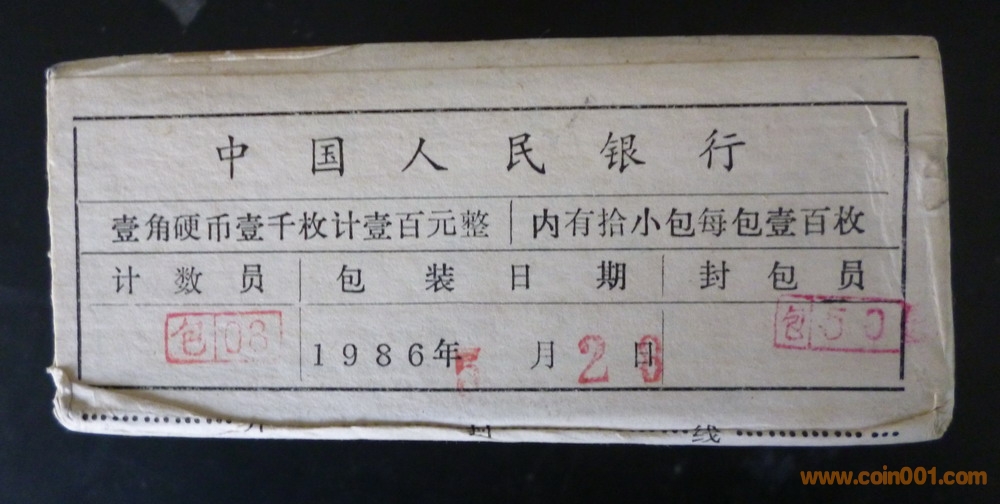 中国人民银行
壹角硬币壹千枚计壹百元整 内有拾小包每包壹百枚
计数员 包装日期 封包员
包 08 1986年5月20日 包 50
封 线
www.coin001.com